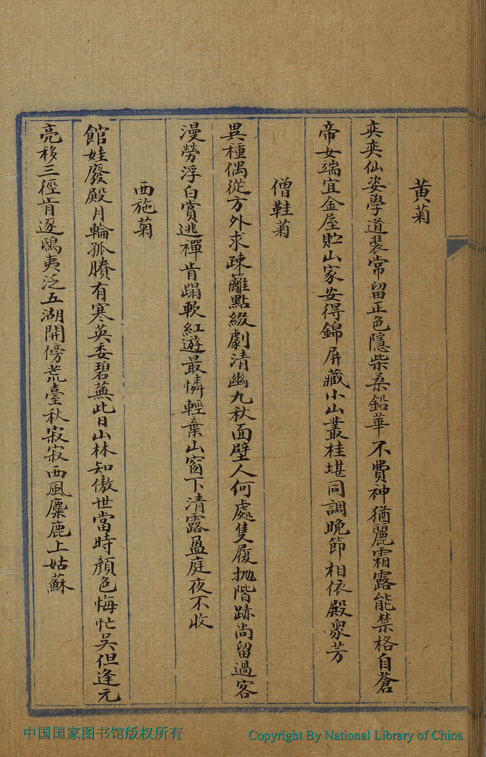 黃菊
奕奕仙姿學道裝常留正色隱柴桑鉛華不費神猶麗霜露能禁格自蒼
帝女端宜金屋貯山家安得錦屏藏小山叢桂堪同調晚節相依殿衆芳
僧鞋菊
異種偶從方外求疎籬點綴劇清幽九秋面壁人何處隻履拋階跡尚留過客
漫勞浮白賞逃禪肯蹋軟紅遊最憐輕棄山窗下清露盈庭夜不收
西施菊
館娃廢殿月輪孤賸有寒英委碧蕪此日山林知傲世當時顏色悔忙吳但逢元
亮移三徑肯逐鴟夷泛五湖開傍荒臺秋寂寂西風麋鹿上姑蘇
中国国家图书馆版权所有
Copyright By National Library of China